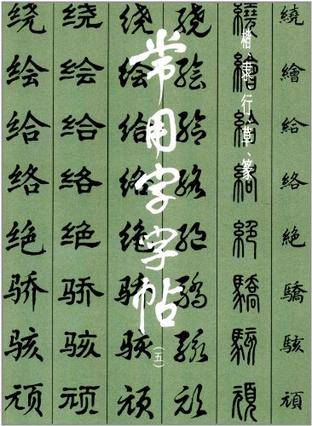 常用字字帖
(五)
楷、隶、行、草、篆
绕绘给络绝骄骇顽
绕绘给络绝骄骇顽
绕绘给络绝骄骇顽
绕绘给络绝骄骇顽
繞繪給絡絶驕駭頑
繞繪給絡絶驕駭頑